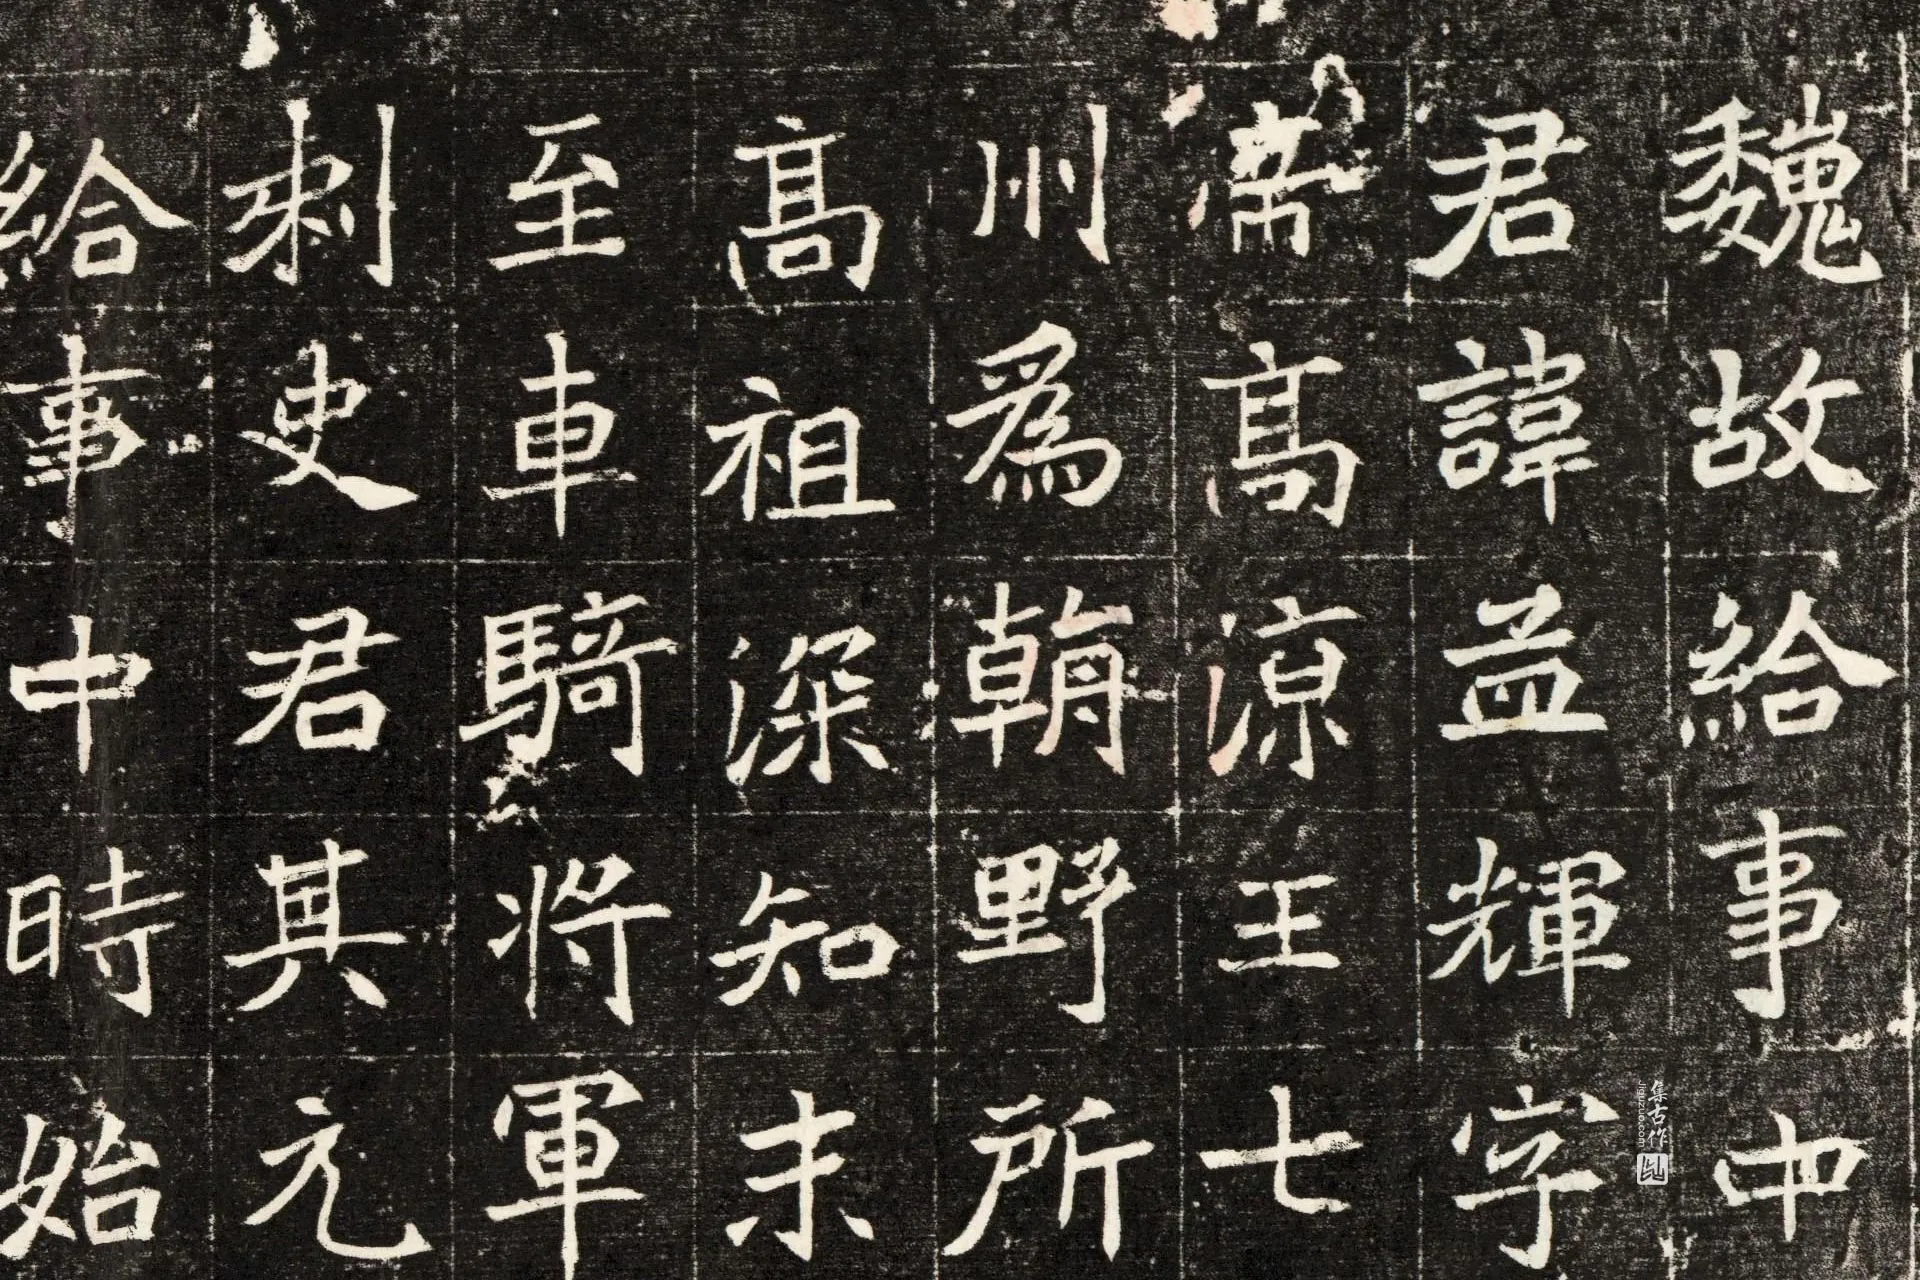 魏故給事中
君諱益輝字
帝高涼王七
州為朝野所
高祖深知未
至車騎將軍
刺史君其元
給事中時始
集古作
jiguzuo.com